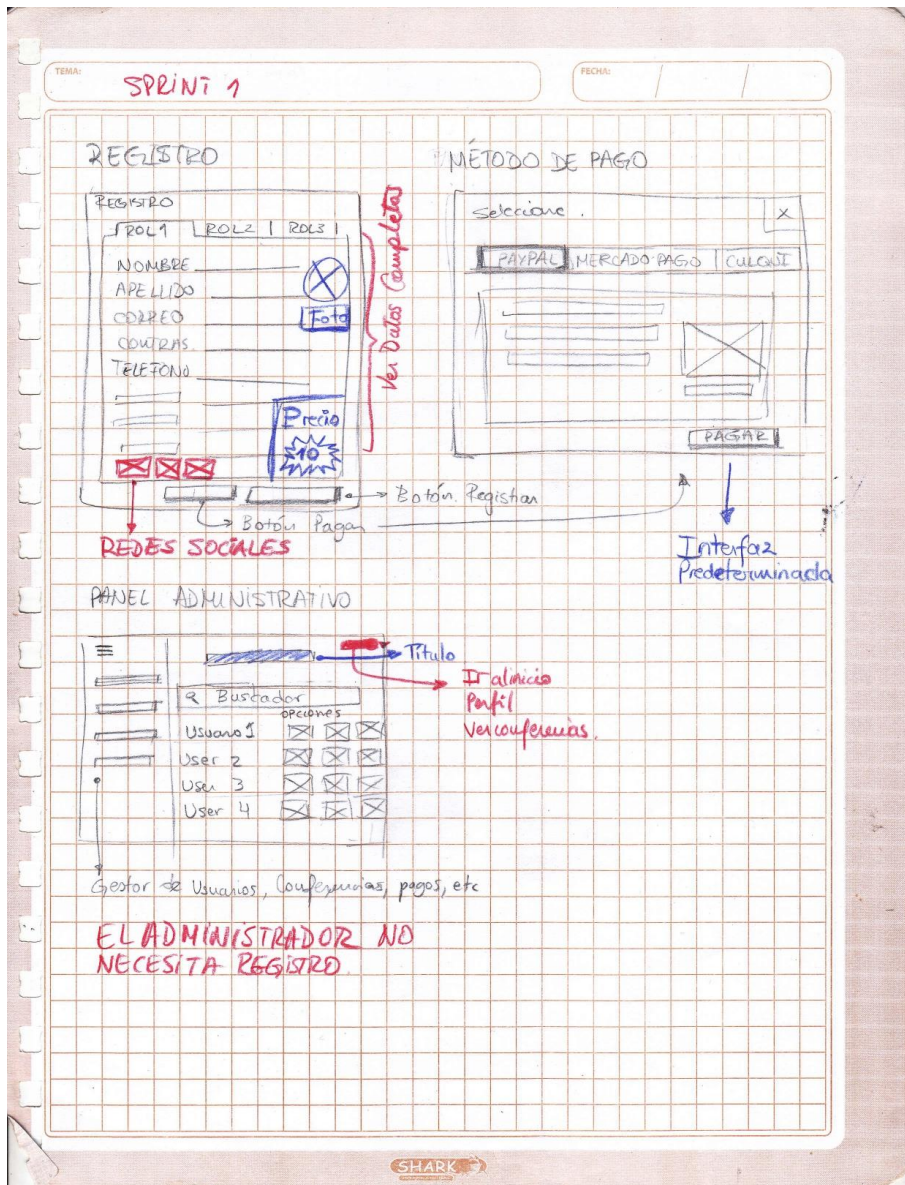 TEMA:
SPRINT 1
FECHA:
REGISTRO
REGISTRO
ROL1
ROL2
ROL3
NOMBRE
APELLIDO
CORREO
CONTRAS.
TELEFONO
Foto
Precio
10
Ver Datos Completos
Botón Registrar
Botón Pagar
REDES SOCIALES
MÉTODO DE PAGO
Seleccione.
X
PAYPAL
MERCADO PAGO
CULQUI
PAGAR
Interfaz
Predeterminada
PANEL ADMINISTRATIVO
Título
Ir al inicio
Perfil
Ver conferencias.
Buscador
opciones
Usuario 1
User 2
User 3
User 4
Gestor de Usuarios, Conferencias, pagos, etc
EL ADMINISTRADOR NO
NECESITA REGISTRO.
SHARK